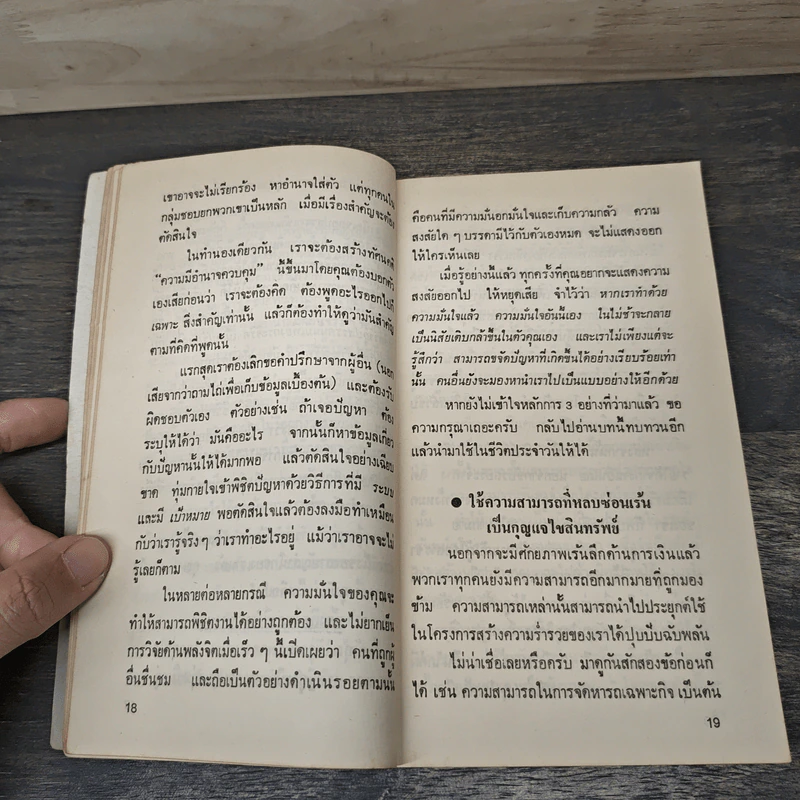 เขาอาจจะไม่เรียกร้อง หาอำนาจใส่ตัว แต่ทุกคนใน
กลุ่มชอบยกพวกเขาเป็นหลัก เมื่อมีเรื่องสำคัญจะต้อง
ตัดสินใจ
ในทำนองเดียวกัน เราจะต้องสร้างทัศนคติ
“ความมีอำนาจควบคุม” นี้ขึ้นมาโดยคุณต้องบอกตัว
เองเสียก่อนว่า เราจะต้องคิด ต้องพูดอะไรออกไปก็
เฉพาะ สิ่งสำคัญเท่านั้น แล้วก็ต้องทำให้ดูว่ามันสำคัญ
ตามที่คิดที่พูดนั้น
แรกสุดเราต้องเลิกขอคำปรึกษาจากผู้อื่น (นอก
เสียจากว่าถามไถ่เพื่อเก็บข้อมูลเบื้องต้น) และต้องรับ
ผิดชอบตัวเอง ตัวอย่างเช่น ถ้าเจอปัญหา ต้อง
ระบุให้ได้ว่า มันคืออะไร จากนั้นก็หาข้อมูลเกี่ยว
กับปัญหานั้นให้ได้มากพอ แล้วตัดสินใจอย่างเฉียบ
ขาด ทุ่มกายใจเข้าพิชิตปัญหาด้วยวิธีการที่มี ระบบ
และมี เป้าหมาย พอตัดสินใจแล้วต้องลงมือทำเหมือน
กับว่าเรารู้จริงๆ ว่าเราทำอะไรอยู่ แม้ว่าเราอาจจะไม่
รู้เลยก็ตาม
ในหลายต่อหลายกรณี ความมั่นใจของคุณจะ
ทำให้สามารถพิชิตงานได้อย่างถูกต้อง และไม่ยากเย็น
การวิจัยด้านพลังจิตเมื่อเร็วๆ นี้เปิดเผยว่า คนที่ถูกผู้
อื่นชื่นชม และถือเป็นตัวอย่างดำเนินรอยตามนั้น
18
คือคนที่มีความมั่นอกมั่นใจและเก็บความกลัว ความ
สงสัยใดๆ บรรดามีไว้กับตัวเองหมด จะไม่แสดงออก
ให้ใครเห็นเลย
เมื่อรู้อย่างนี้แล้ว ทุกครั้งที่คุณอยากจะแสดงความ
สงสัยออกไป ให้หยุดเสีย จำไว้ว่า หากเราทำด้วย
ความมั่นใจแล้ว ความมั่นใจอันนี้เอง ในไม่ช้าจะกลาย
เป็นนิสัยเติบกล้าขึ้นในตัวคุณเอง และเราไม่เพียงแต่จะ
รู้สึกว่า สามารถขจัดปัญหาที่เกิดขึ้นได้อย่างเรียบร้อยเท่า
นั้น คนอื่นยังจะมองหานำเราไปเป็นแบบอย่างให้อีกด้วย
หากยังไม่เข้าใจหลักการ 3 อย่างที่ว่ามาแล้ว ขอ
ความกรุณาเถอะครับ กลับไปอ่านบทนี้ทบทวนอีก
แล้วนำมาใช้ในชีวิตประจำวันให้ได้
● ใช้ความสามารถที่หลบซ่อนเร้น
เป็นกุญแจไขสินทรัพย์
นอกจากจะมีศักยภาพเร้นลึกด้านการเงินแล้ว
พวกเราทุกคนยังมีความสามารถอีกมากมายที่ถูกมอง
ข้าม ความสามารถเหล่านั้นสามารถนำไปประยุกต์ใช้
ในโครงการสร้างความร่ำรวยของเราได้ปุบปับฉับพลัน
ไม่น่าเชื่อเลยหรือครับ มาดูกันสักสองข้อก่อนก็
ได้ เช่น ความสามารถในการจัดหารถเฉพาะกิจ เป็นต้น
19